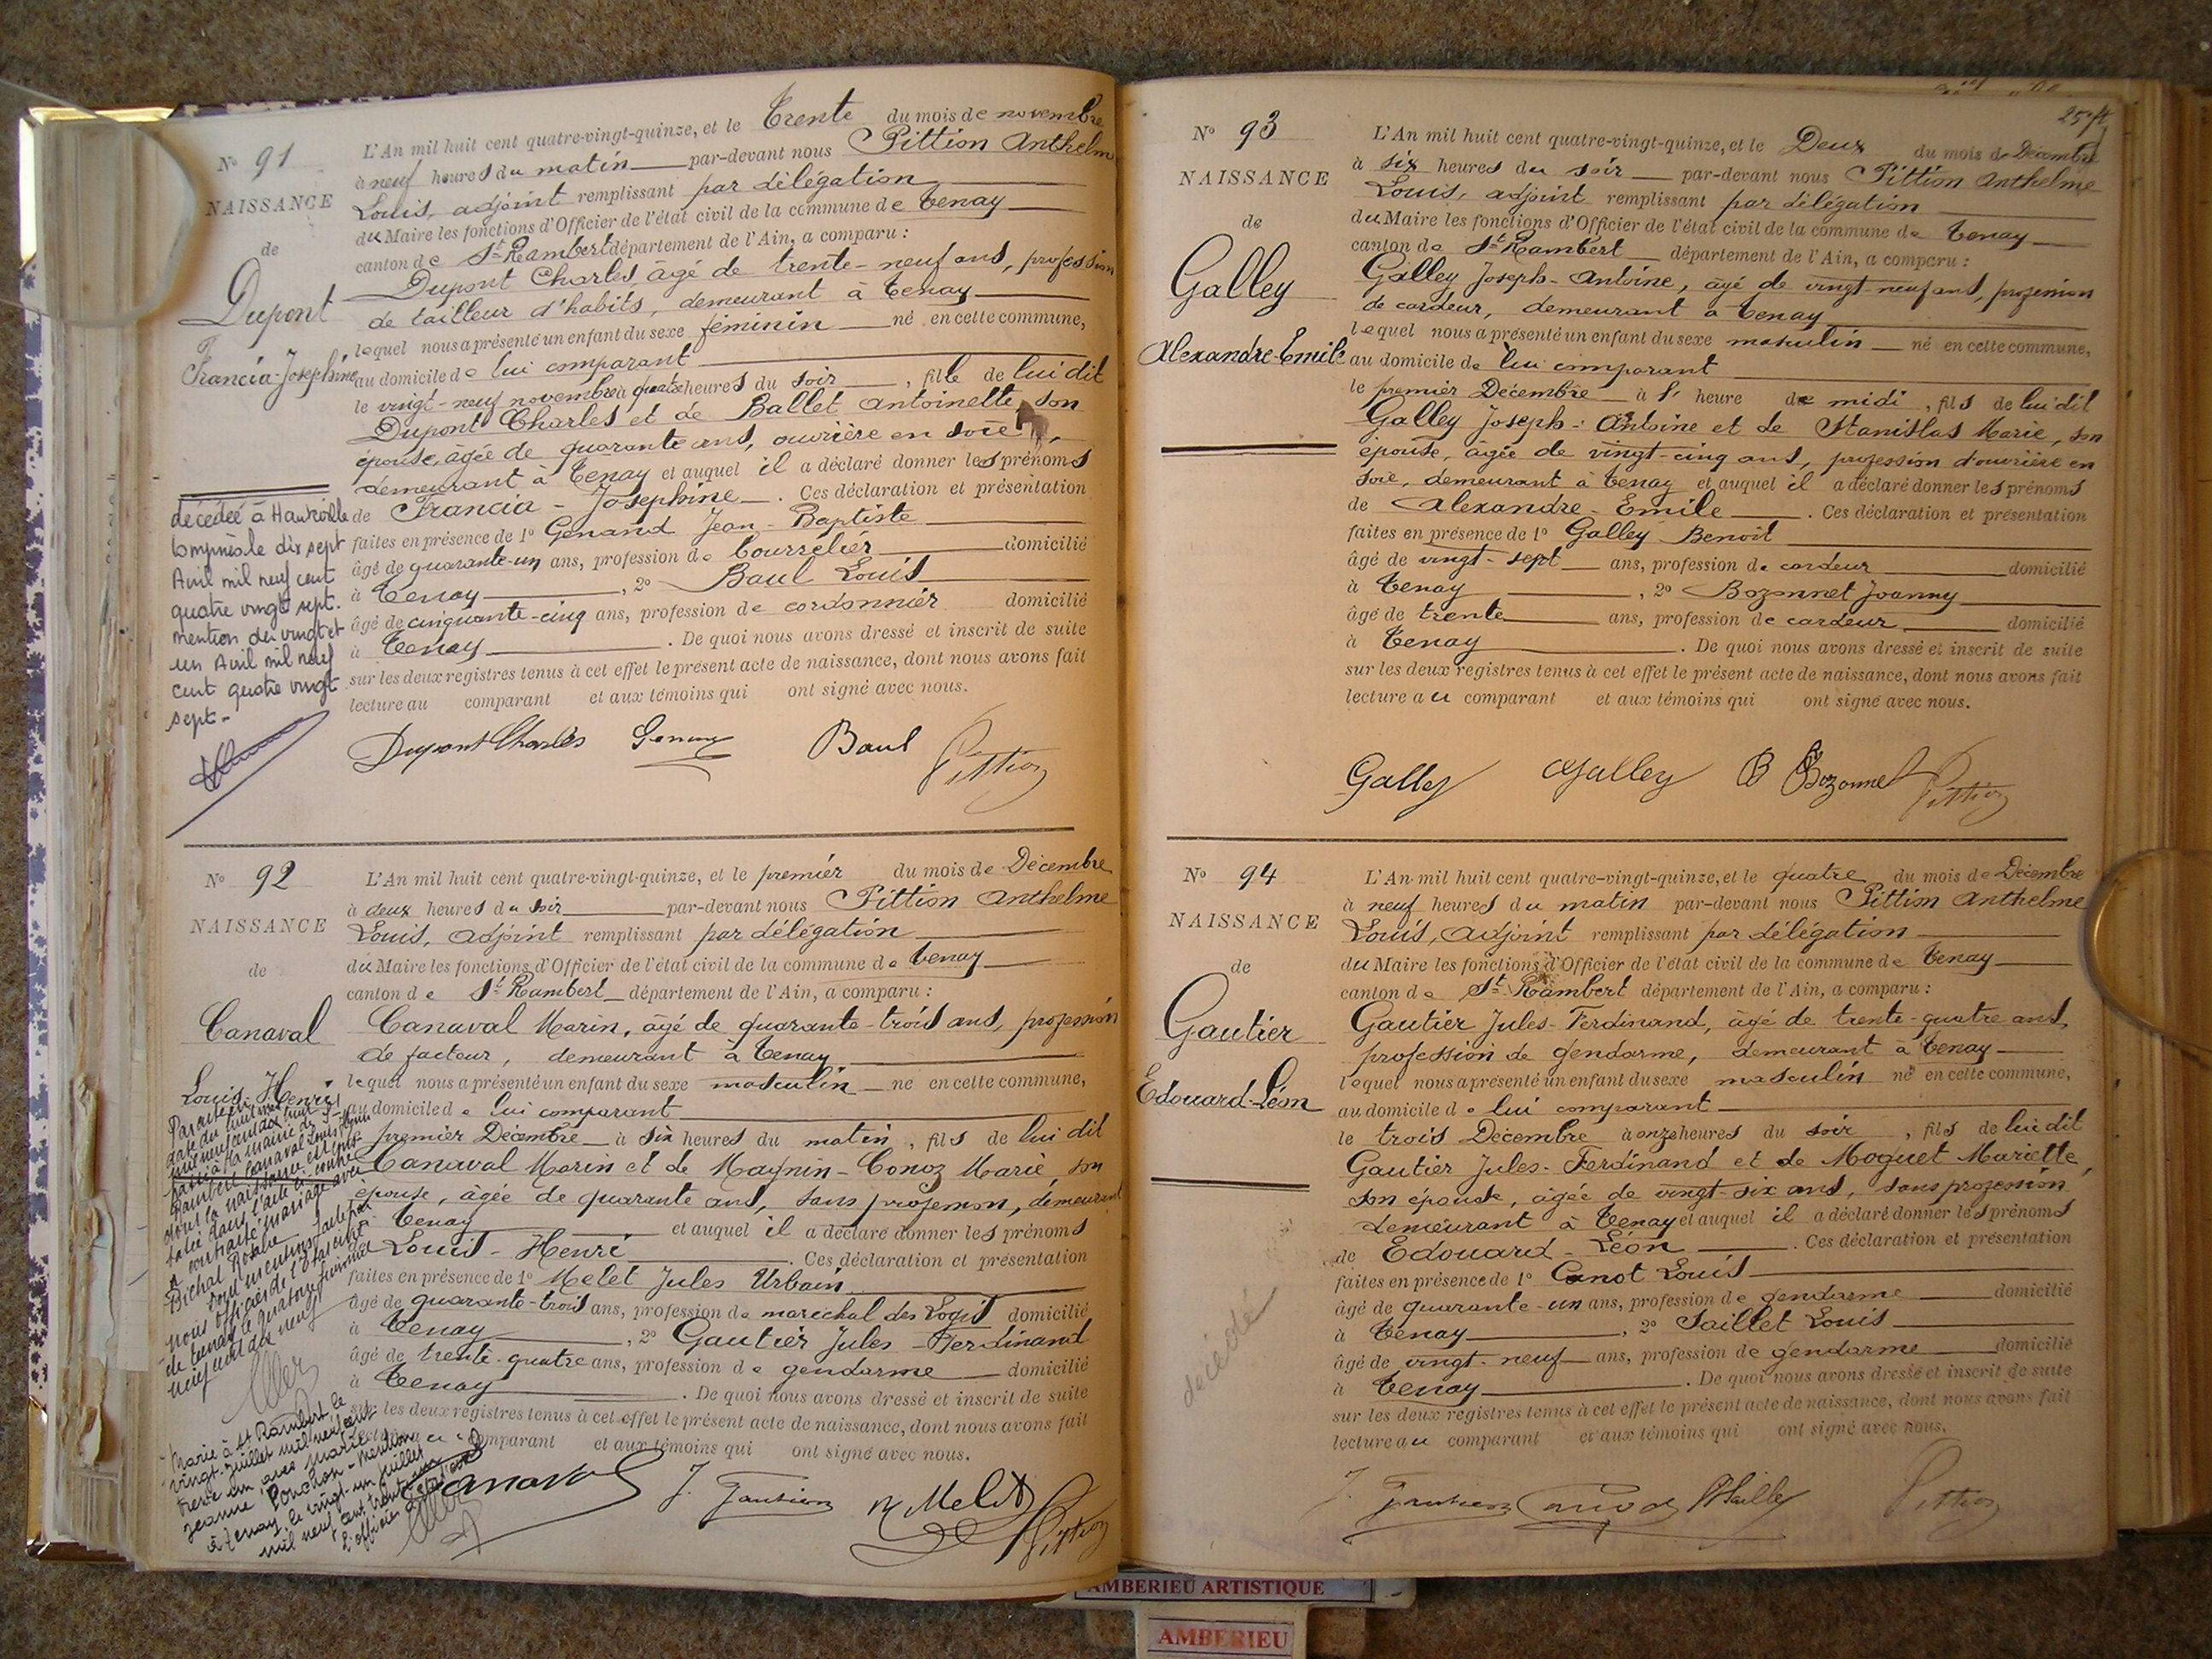 N° 91
NAISSANCE
de
Dupont
Francia-Josephine
décédée à Hauteville
Lompnes le dix sept
Avril mil neuf cent
quatre vingt sept.
mention du vingt et
un Avril mil neuf
cent quatre vingt
sept-
L'An mil huit cent quatre-vingt-quinze, et le Trente du mois de novembre
à neuf heures du matin par-devant nous Pittion Anthelme
Louis, adjoint remplissant par délégation
du Maire les fonctions d'Officier de l'état civil de la commune de Tenay
canton de St Rambert département de l'Ain, a comparu :
Dupont Charles âgé de trente-neuf ans, profession
de tailleur d'habits, demeurant à Tenay
lequel nous a présenté un enfant du sexe féminin né en cette commune,
au domicile de lui comparant
le vingt-neuf novembre à quatre heures du soir, fille de lui dit
Dupont Charles et de Ballet Antoinette son
épouse, âgée de quarante ans, ouvrière en soie,
demeurant à Tenay et auquel il a déclaré donner les prénoms
de Francia - Josephine. Ces déclaration et présentation
faites en présence de 1° Genand Jean-Baptiste
âgé de quarante-un ans, profession de Bourrelier domicilié
à Tenay, 2° Baul Louis
âgé de cinquante-cinq ans, profession de cordonnier domicilié
à Tenay. De quoi nous avons dressé et inscrit de suite
sur les deux registres tenus à cet effet le présent acte de naissance, dont nous avons fait
lecture au comparant et aux témoins qui ont signé avec nous.
Dupont Charles Baul Pittion
N° 92
NAISSANCE
de
Canaval
Louis Henri
Bichat Rosalie
neuf cent dix neuf
Marié à St Rambert le
vingt juillet mil neuf cent
trente un avec Marie
Jeanne Ponchon - Mention
à Tenay le vingt-un juillet
mil neuf cent trente un
L'officier
L'An mil huit cent quatre-vingt-quinze, et le premier du mois de Décembre
à deux heures du soir par-devant nous Pittion Anthelme
Louis, adjoint remplissant par délégation
du Maire les fonctions d'Officier de l'état civil de la commune de Tenay
canton de St Rambert département de l'Ain, a comparu :
Canaval Marin, âgé de quarante-trois ans, profession
de facteur, demeurant à Tenay
lequel nous a présenté un enfant du sexe masculin né en cette commune,
au domicile de lui comparant
premier Décembre à six heures du matin, fils de lui dit
Canaval Marin et de Magnin-Conoz Marie, son
épouse, âgée de quarante ans, sans profession, demeurant
à Tenay et auquel il a déclaré donner les prénoms
Louis - Henri. Ces déclaration et présentation
faites en présence de 1° Melet Jules Urbain
âgé de quarante-trois ans, profession de maréchal des Logis domicilié
à Tenay, 2° Gautier Jules-Ferdinand
âgé de trente-quatre ans, profession de gendarme domicilié
à Tenay. De quoi nous avons dressé et inscrit de suite
sur les deux registres tenus à cet effet le présent acte de naissance, dont nous avons fait
lecture au comparant et aux témoins qui ont signé avec nous.
Canaval J. Gautier Melet Pittion
25
N° 93
NAISSANCE
de
Galley
Alexandre-Emile
L'An mil huit cent quatre-vingt-quinze, et le Deux du mois de Décembre
à six heures du soir par-devant nous Pittion Anthelme
Louis, adjoint remplissant par délégation
du Maire les fonctions d'Officier de l'état civil de la commune de Tenay
canton de St Rambert département de l'Ain, a comparu :
Galley Joseph-Antoine, âgé de vingt-neuf ans, profession
de cardeur, demeurant à Tenay
lequel nous a présenté un enfant du sexe masculin né en cette commune,
au domicile de lui comparant
le premier Décembre à heure de midi, fils de lui dit
Galley Joseph-Antoine et de Stanislas Marie, son
épouse, âgée de vingt-cinq ans, profession d'ouvrière en
soie, demeurant à Tenay et auquel il a déclaré donner les prénoms
de Alexandre-Emile. Ces déclaration et présentation
faites en présence de 1° Galley Benoit
âgé de vingt-sept ans, profession de cardeur domicilié
à Tenay, 2° Bozonnet Joanny
âgé de trente ans, profession de cardeur domicilié
à Tenay. De quoi nous avons dressé et inscrit de suite
sur les deux registres tenus à cet effet le présent acte de naissance, dont nous avons fait
lecture au comparant et aux témoins qui ont signé avec nous.
Galley Galley B Bozonnet Pittion
N° 94
NAISSANCE
de
Gautier
Edouard-Léon
décédé
L'An mil huit cent quatre-vingt-quinze, et le quatre du mois de Décembre
à neuf heures du matin par-devant nous Pittion Anthelme
Louis, adjoint remplissant par délégation
du Maire les fonctions d'Officier de l'état civil de la commune de Tenay
canton de St Rambert département de l'Ain, a comparu :
Gautier Jules-Ferdinand, âgé de trente-quatre ans,
profession de gendarme, demeurant à Tenay
lequel nous a présenté un enfant du sexe masculin né en cette commune,
au domicile de lui comparant
le trois Décembre à onze heures du soir, fils de lui dit
Gautier Jules-Ferdinand et de Moguet Mariette,
son épouse, âgée de vingt-six ans, sans profession
demeurant à Tenay et auquel il a déclaré donner les prénoms
de Edouard-Léon. Ces déclaration et présentation
faites en présence de 1° Canot Louis
âgé de quarante-un ans, profession de gendarme domicilié
à Tenay, 2° Saillet Louis
âgé de vingt-neuf ans, profession de gendarme domicilié
à Tenay. De quoi nous avons dressé et inscrit de suite
sur les deux registres tenus à cet effet le présent acte de naissance, dont nous avons fait
lecture au comparant et aux témoins qui ont signé avec nous.
J. Gautier Canot Saillet Pittion
AMBERIEU ARTISTIQUE
AMBERIEU